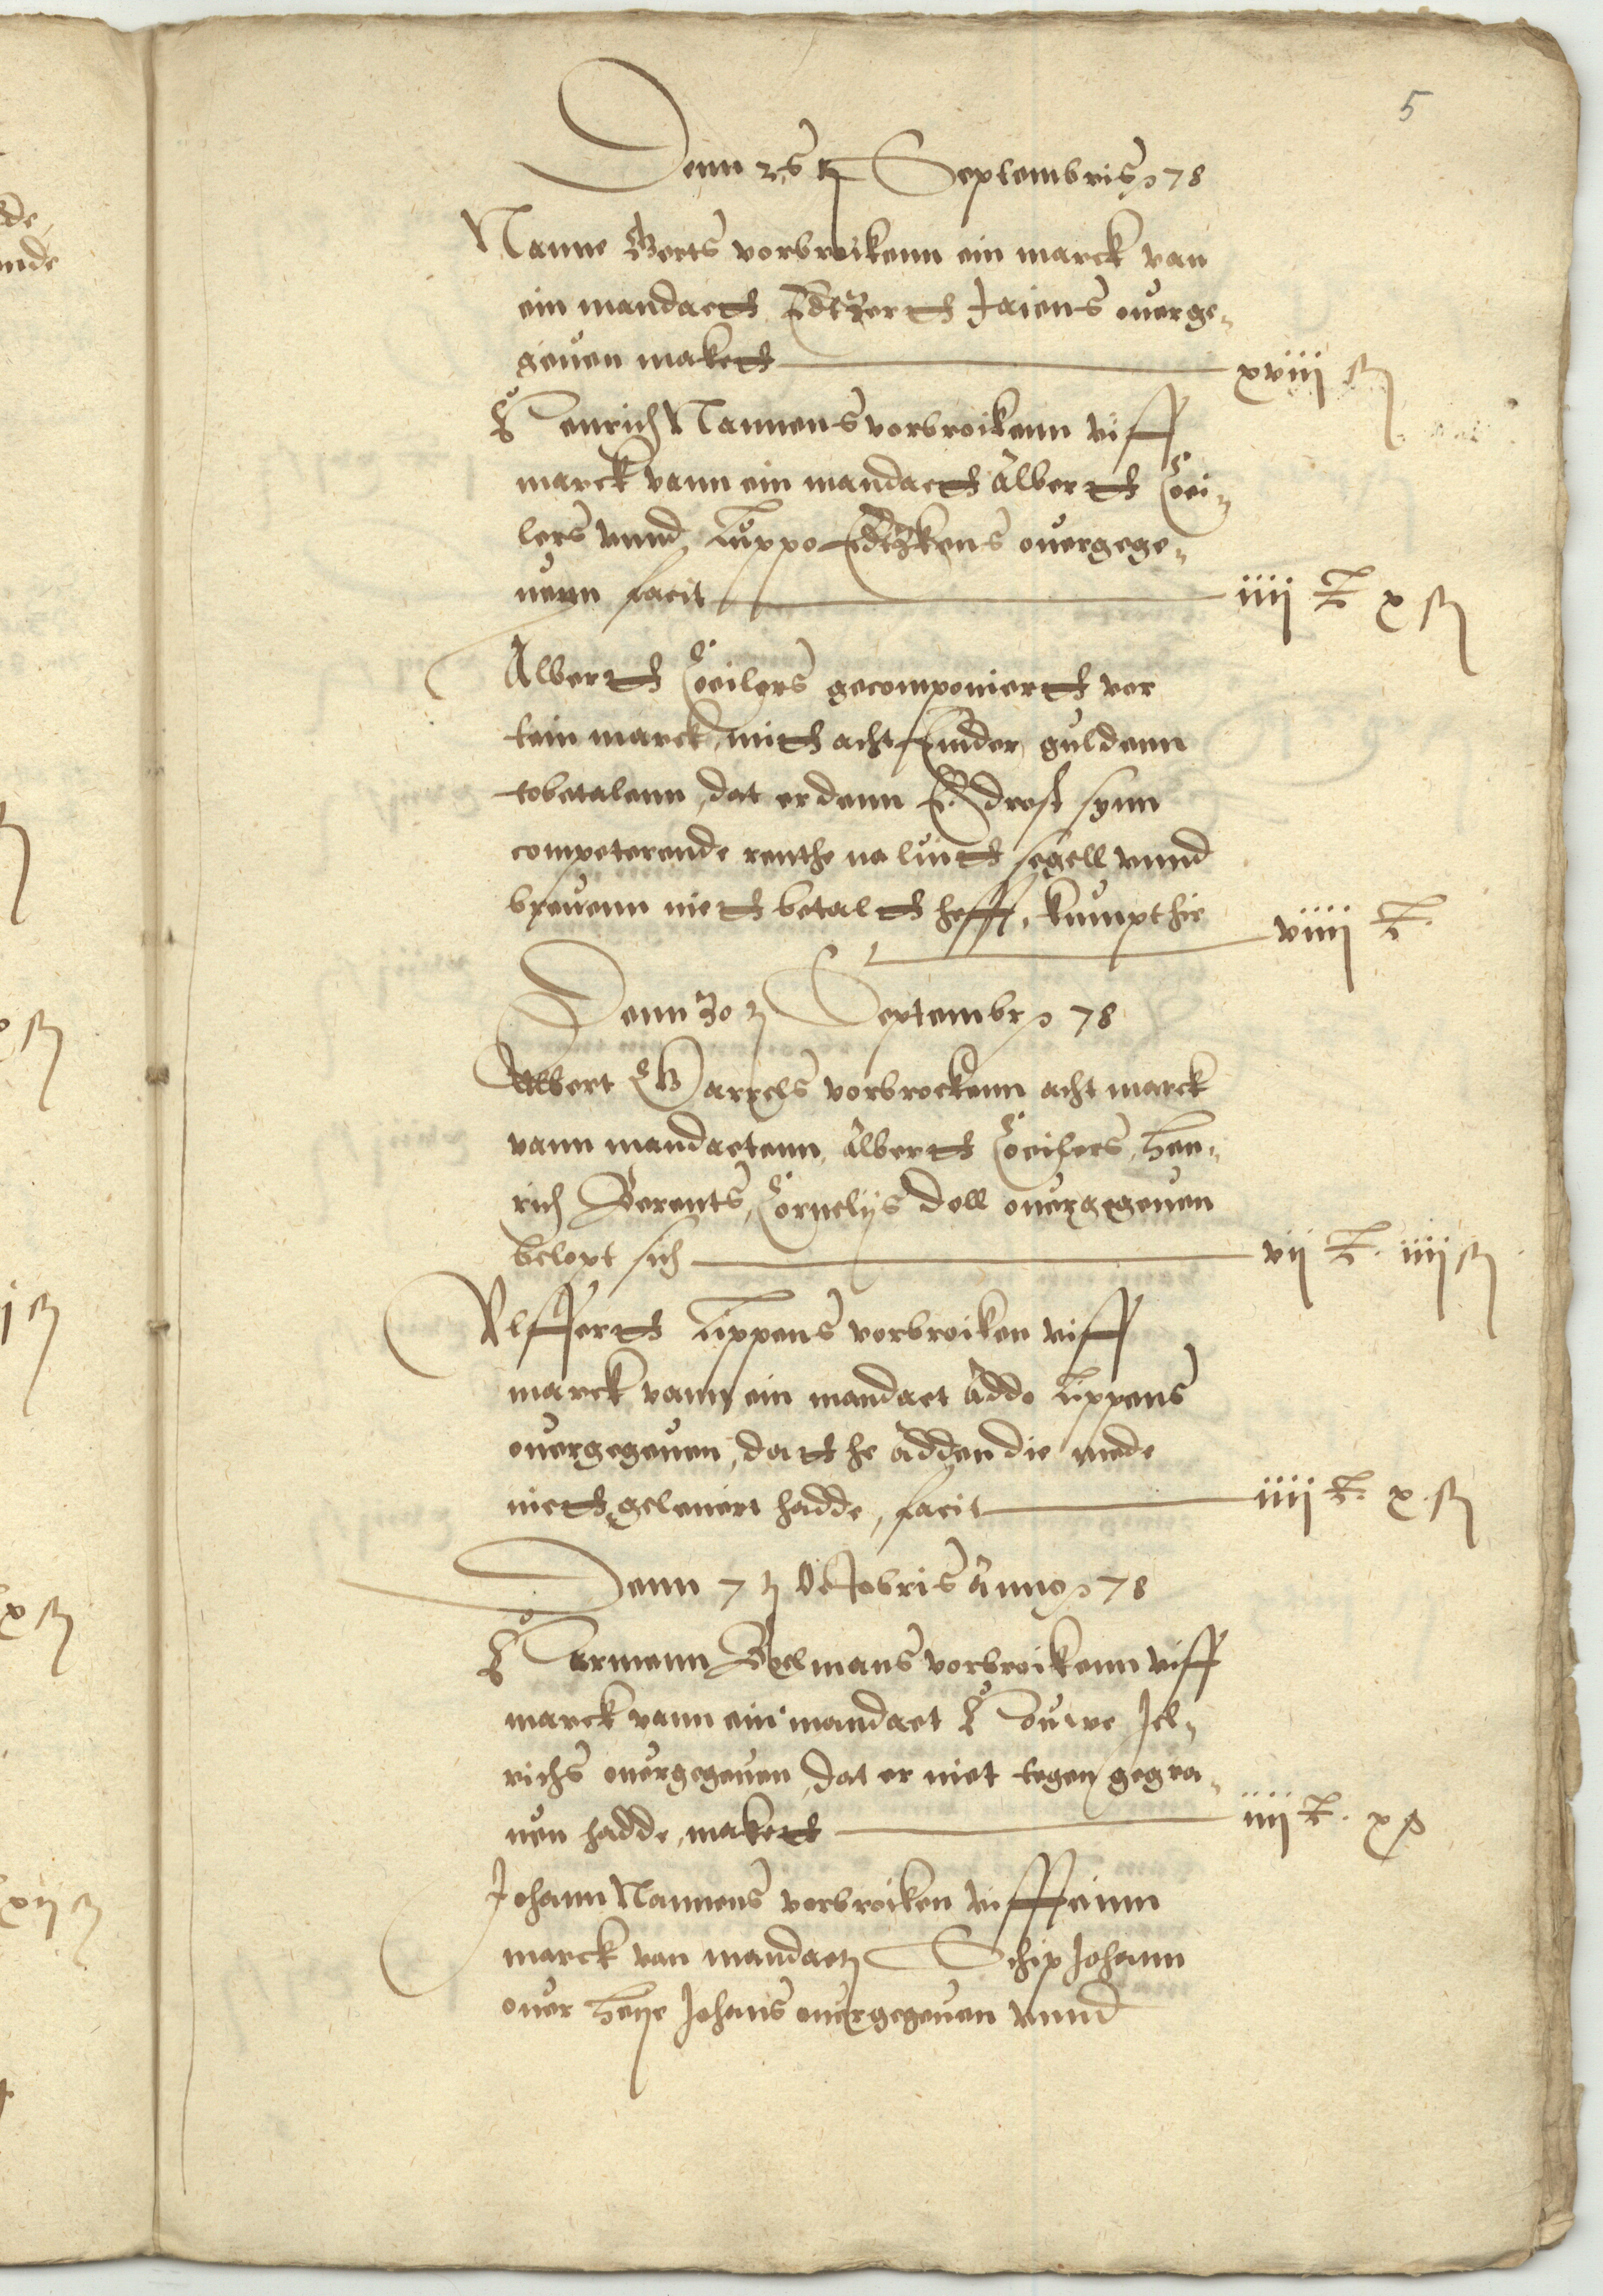 5
Denn 25 tz Septembris 78
Nanne Gerts vorbroikenn ein marck van
ein mandaett Edtzertt Jaiens ouerge„
geuen makett xviij ß
Henrich Nannens vorbroikenn viff
marck vann ein mandaett Albertt Coei„
lers vnnd Luppo Edtzkens ouergege„
nenn facit iiij g x ß
Albertt Coeilers gecomponiertt vor
tein marck, mitt acht Emder guldenn
tobetalenn, dat er denn E. drost synn
competerende renthe na luitt segell vnnd
breuenn niett betaltt heff, kumpt hie
viiij g
Denn 30 tz Septembr 78
Albert Garrels vorbrockenn acht marck
vann mandaetenn Albertt Coeilers, Hen„
rich Berents, Cornelijs Doll ouergegeuen
belopt sich vij g iiij ß
Vlffertt Lippens vorbroiken viff
marck vann ein mandaet Addo Lippens
ouergegeuen, datt he Adden die mede
niett geleuert hadde, facit iiij g x ß
Denn 7 tz Octobris Anno 78
Harmenn Boelmans vorbroikenn viff
marck vann ein mandaet Houwe Jel„
richs ouergegeuen, dat er niet tegen gegra„
uen hadde, makett iiij g x ß
Johann Nannens vorbroiken viffteinn
marck van mandaetz Schip Johann
ouer Heye Johans ouergegeuen vnnd